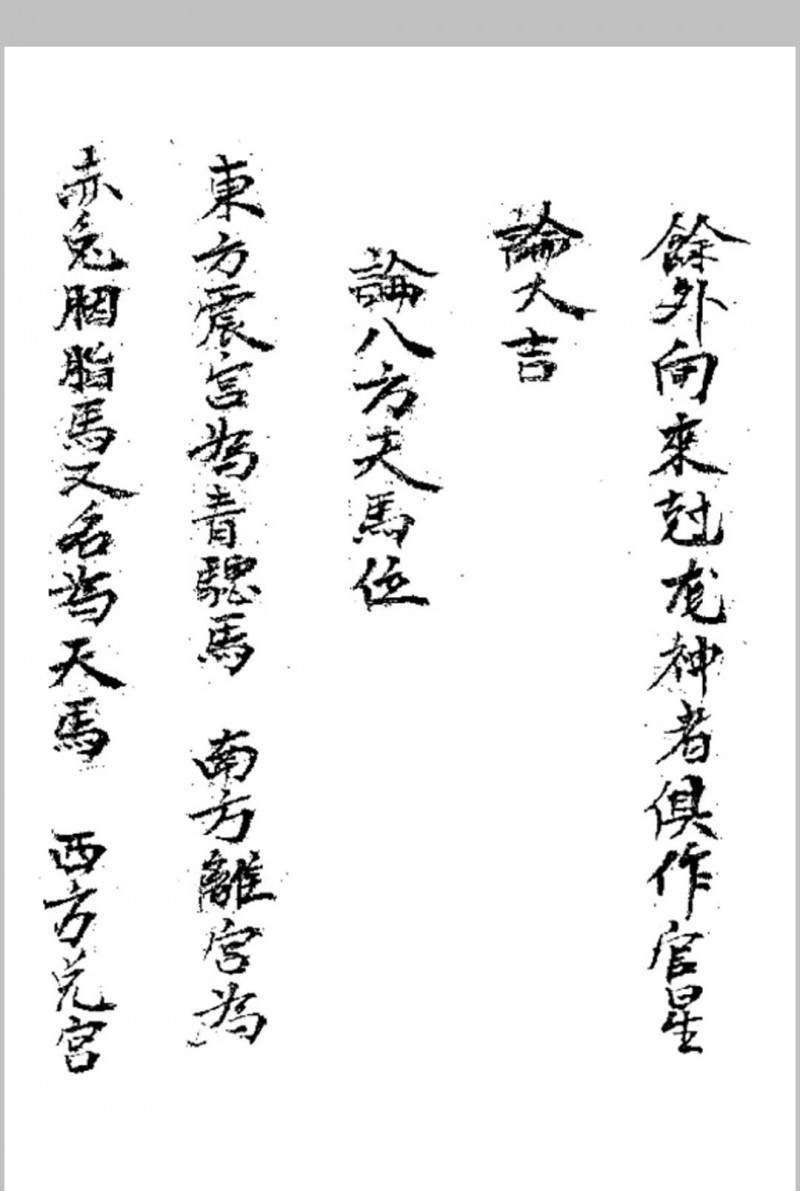 餘外向來尅龙神者俱作官星
論大吉
論八方天馬位
東方震宫為青驄馬 南方離宫為
赤兎胭脂馬又名為天馬 西方兑宫